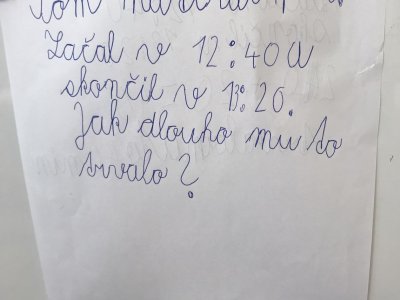 Tom
Začal v 12:40 a
skončil v 13:20.
Jak dlouho mu to
trvalo?